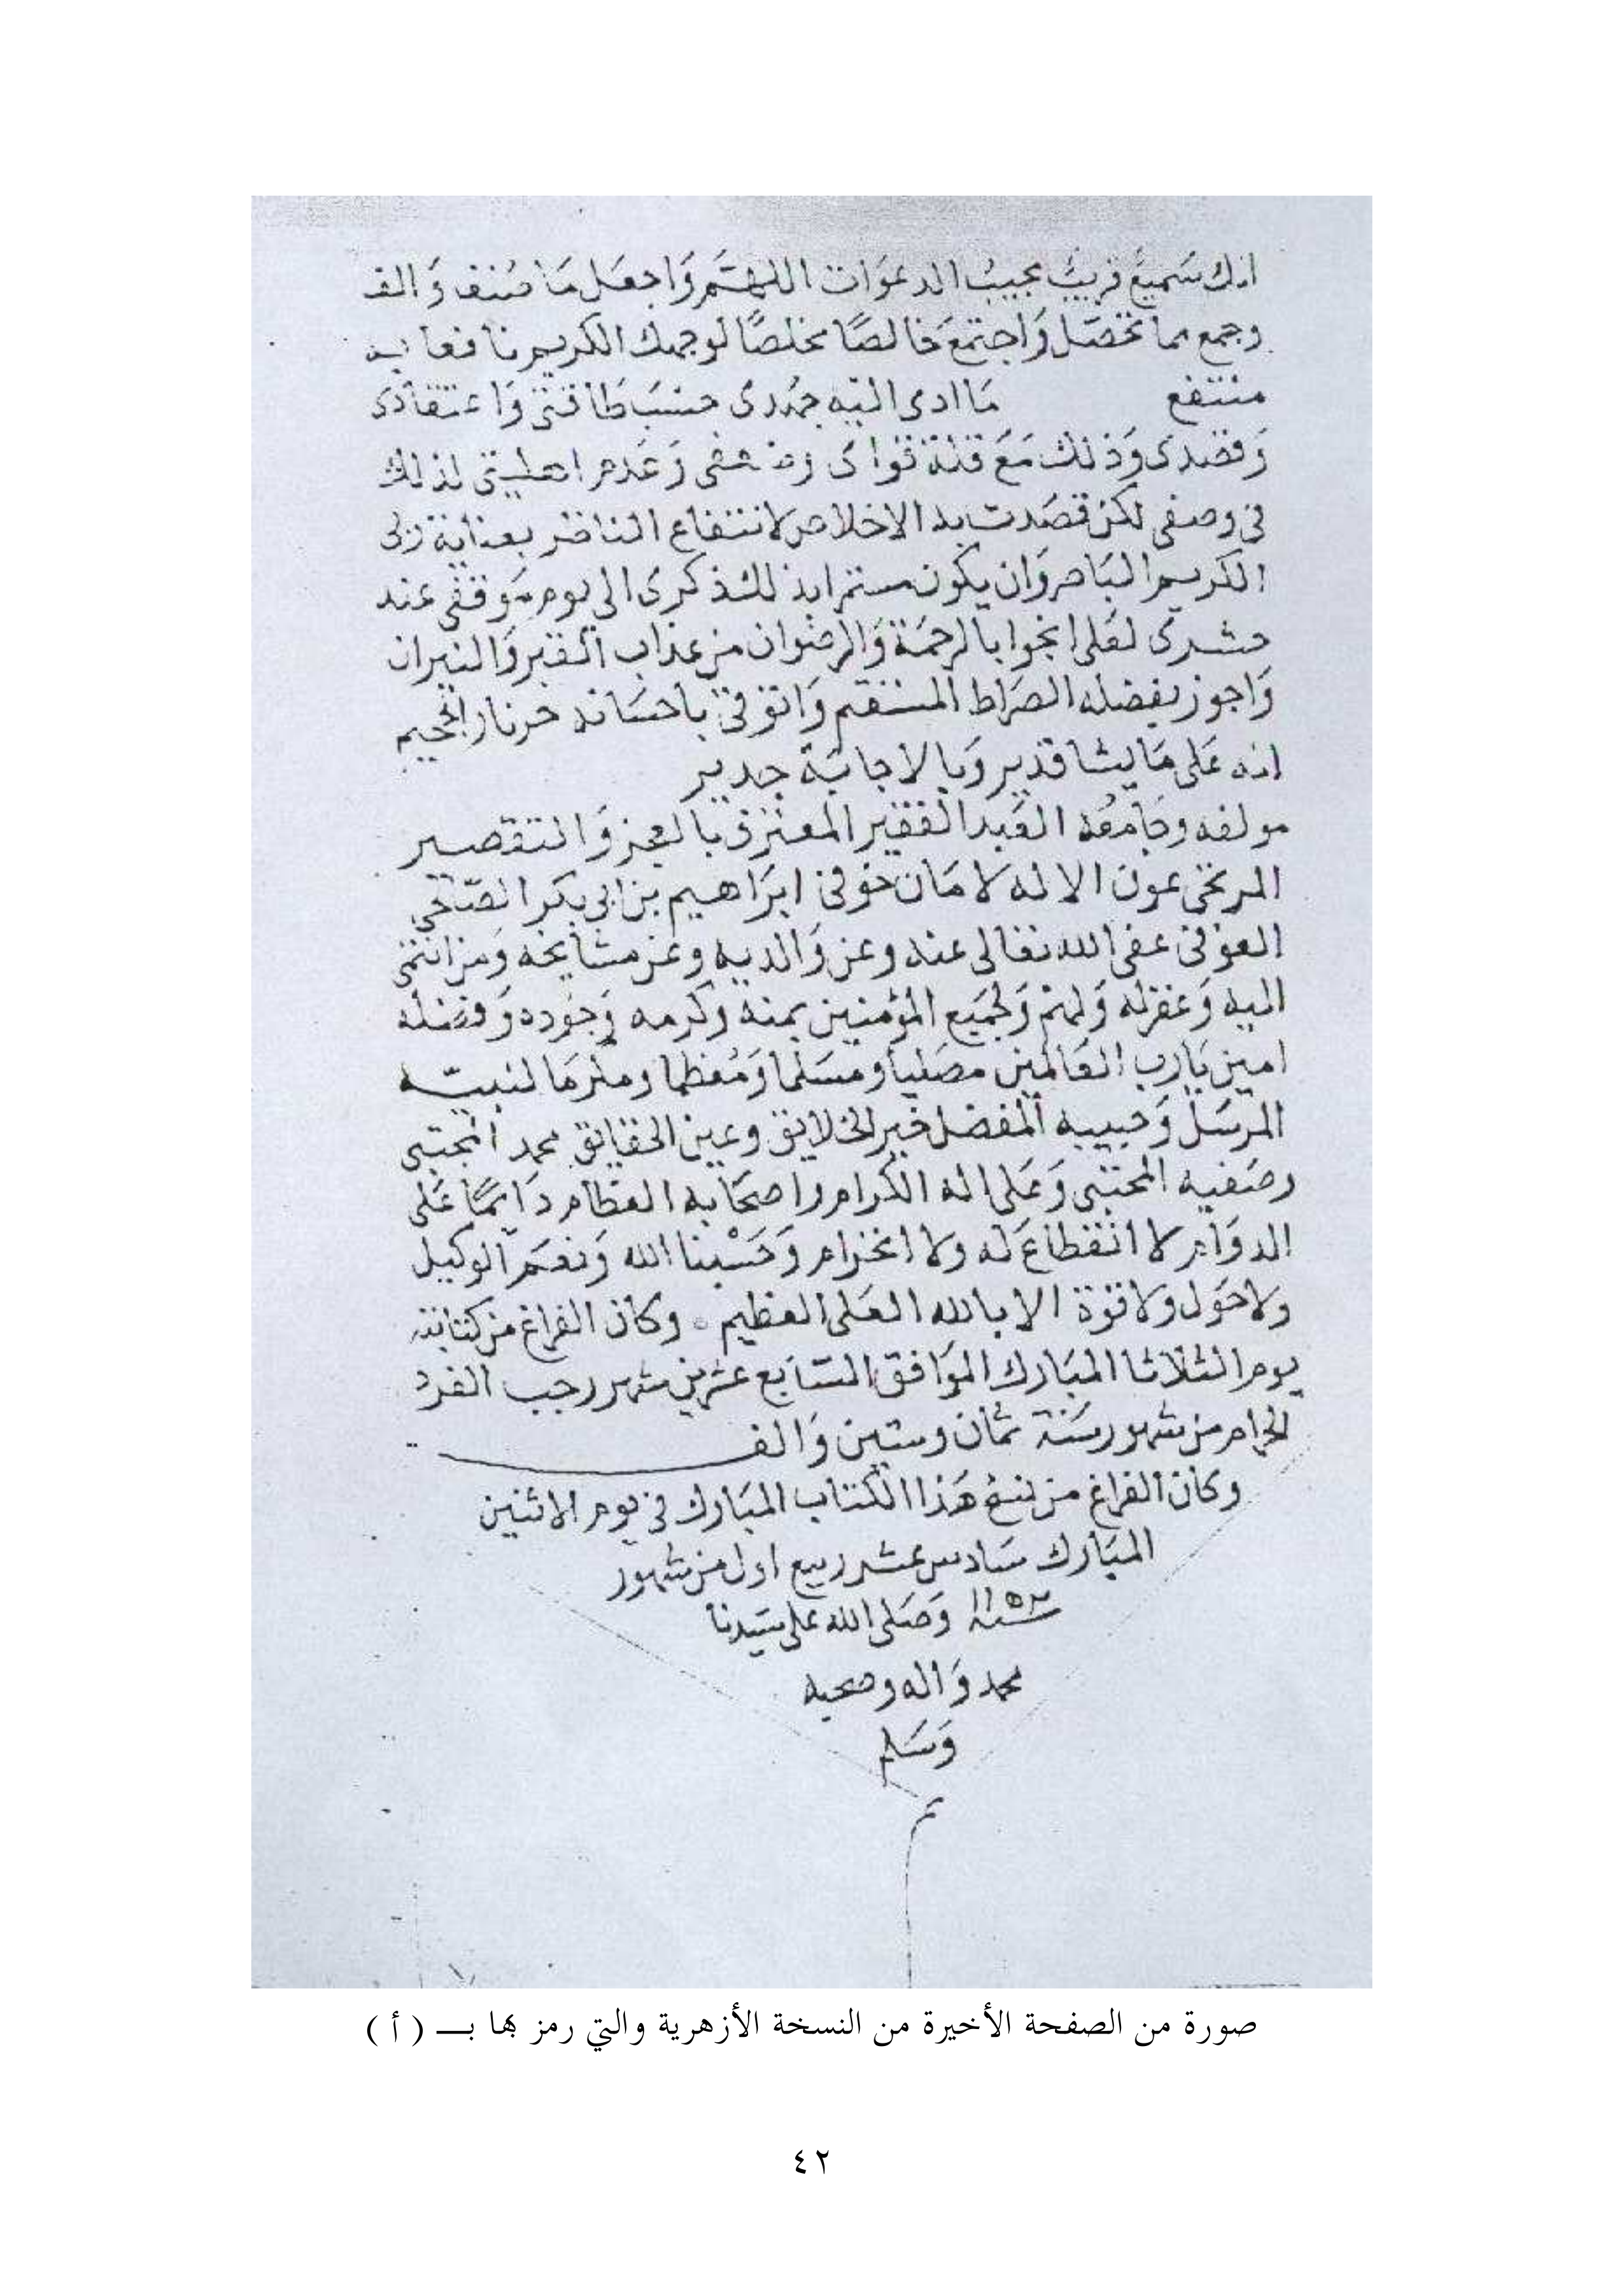 انك سَميعٌ قريبٌ مجيبُ الدعوَات اللهمَّ وَاجعَل مَا صُنف وَالف
وجمع مما تحصَّل وَاجتمَعَ خالصًا مخلصًا لوجهك الكريم نافعا به
منتفع مَا ادى اليَه جهدى حسَب طاقتى وَاعتقادى
وَقصدى وَذلك مَعَ قلة قواى وضعفى وَعَدم اهليتى لذلك
فى وصفى لكن قصَدت به الاخلاص لانتفاع الناظر بعناية ربى
الكريم البَاهر وَان يكون مستمرا بذلك ذكرى الى يوم مَوقفى عند
حشرى لعَلى انجوا بالرحمَة وَالرضوان من عذاب القبر وَالنيران
وَاجوز بفضله الصرَاط المستقيم وَاتوقى باحسَانه حر نار الجحيم
انه عَلى مَا يشا قدير وَبالاجابَة جدير
مولفه وجَامعُه العَبد الفقير المعترف بالعجز وَالتقصير
المرتجى عون الاله لامَان خوفى ابرَاهيم بن ابى بكر الصّالحى
العوفى عفى الله تعالى عنه وعن وَالديه وعن مشايخه وَمن انتمى
اليه وَغفر له وَلهم وَلجميَع المؤمنين بمنه وكرمه وَجُوده وَفضله
امين يَارب العَالمين مصَليا ومسَلما وَمُعظما ومكرمَا لنبيّه
المرسَل وَحبيبه المفضل خير الخلايق وعين الحقايق محمد المجتبى
وصَفيه المجتبى وَعَلى اله الكرام واصحَابه العظام دَائمًا عَلى
الدوَام لا انقطاعَ له ولا انخزام وَحَسْبنا الله وَنعمَ الوكيل
ولاحَول ولاقوة الا بالله العَلى العظيم وكان الفراغ من كتابته
يوم الثلاثا المبَارك الموَافق السَّابع عشر من شهر رجب الفرد
الحرام من شهور سَنة ثمان وستين وَالف
وكان الفراغ من نسخ هَذا الكتاب المبَارك فى يوم الاثنين
المبَارك سَادس عشر ربيع اول من شهور
سنة ١١٥٣ وَصَلى الله على سَيدنا
محمد وَاله وصحبه
وَسَلم
تم
صورة من الصفحة الأخيرة من النسخة الأزهرية والتي رمز لها بـــ ( أ )
٤٢